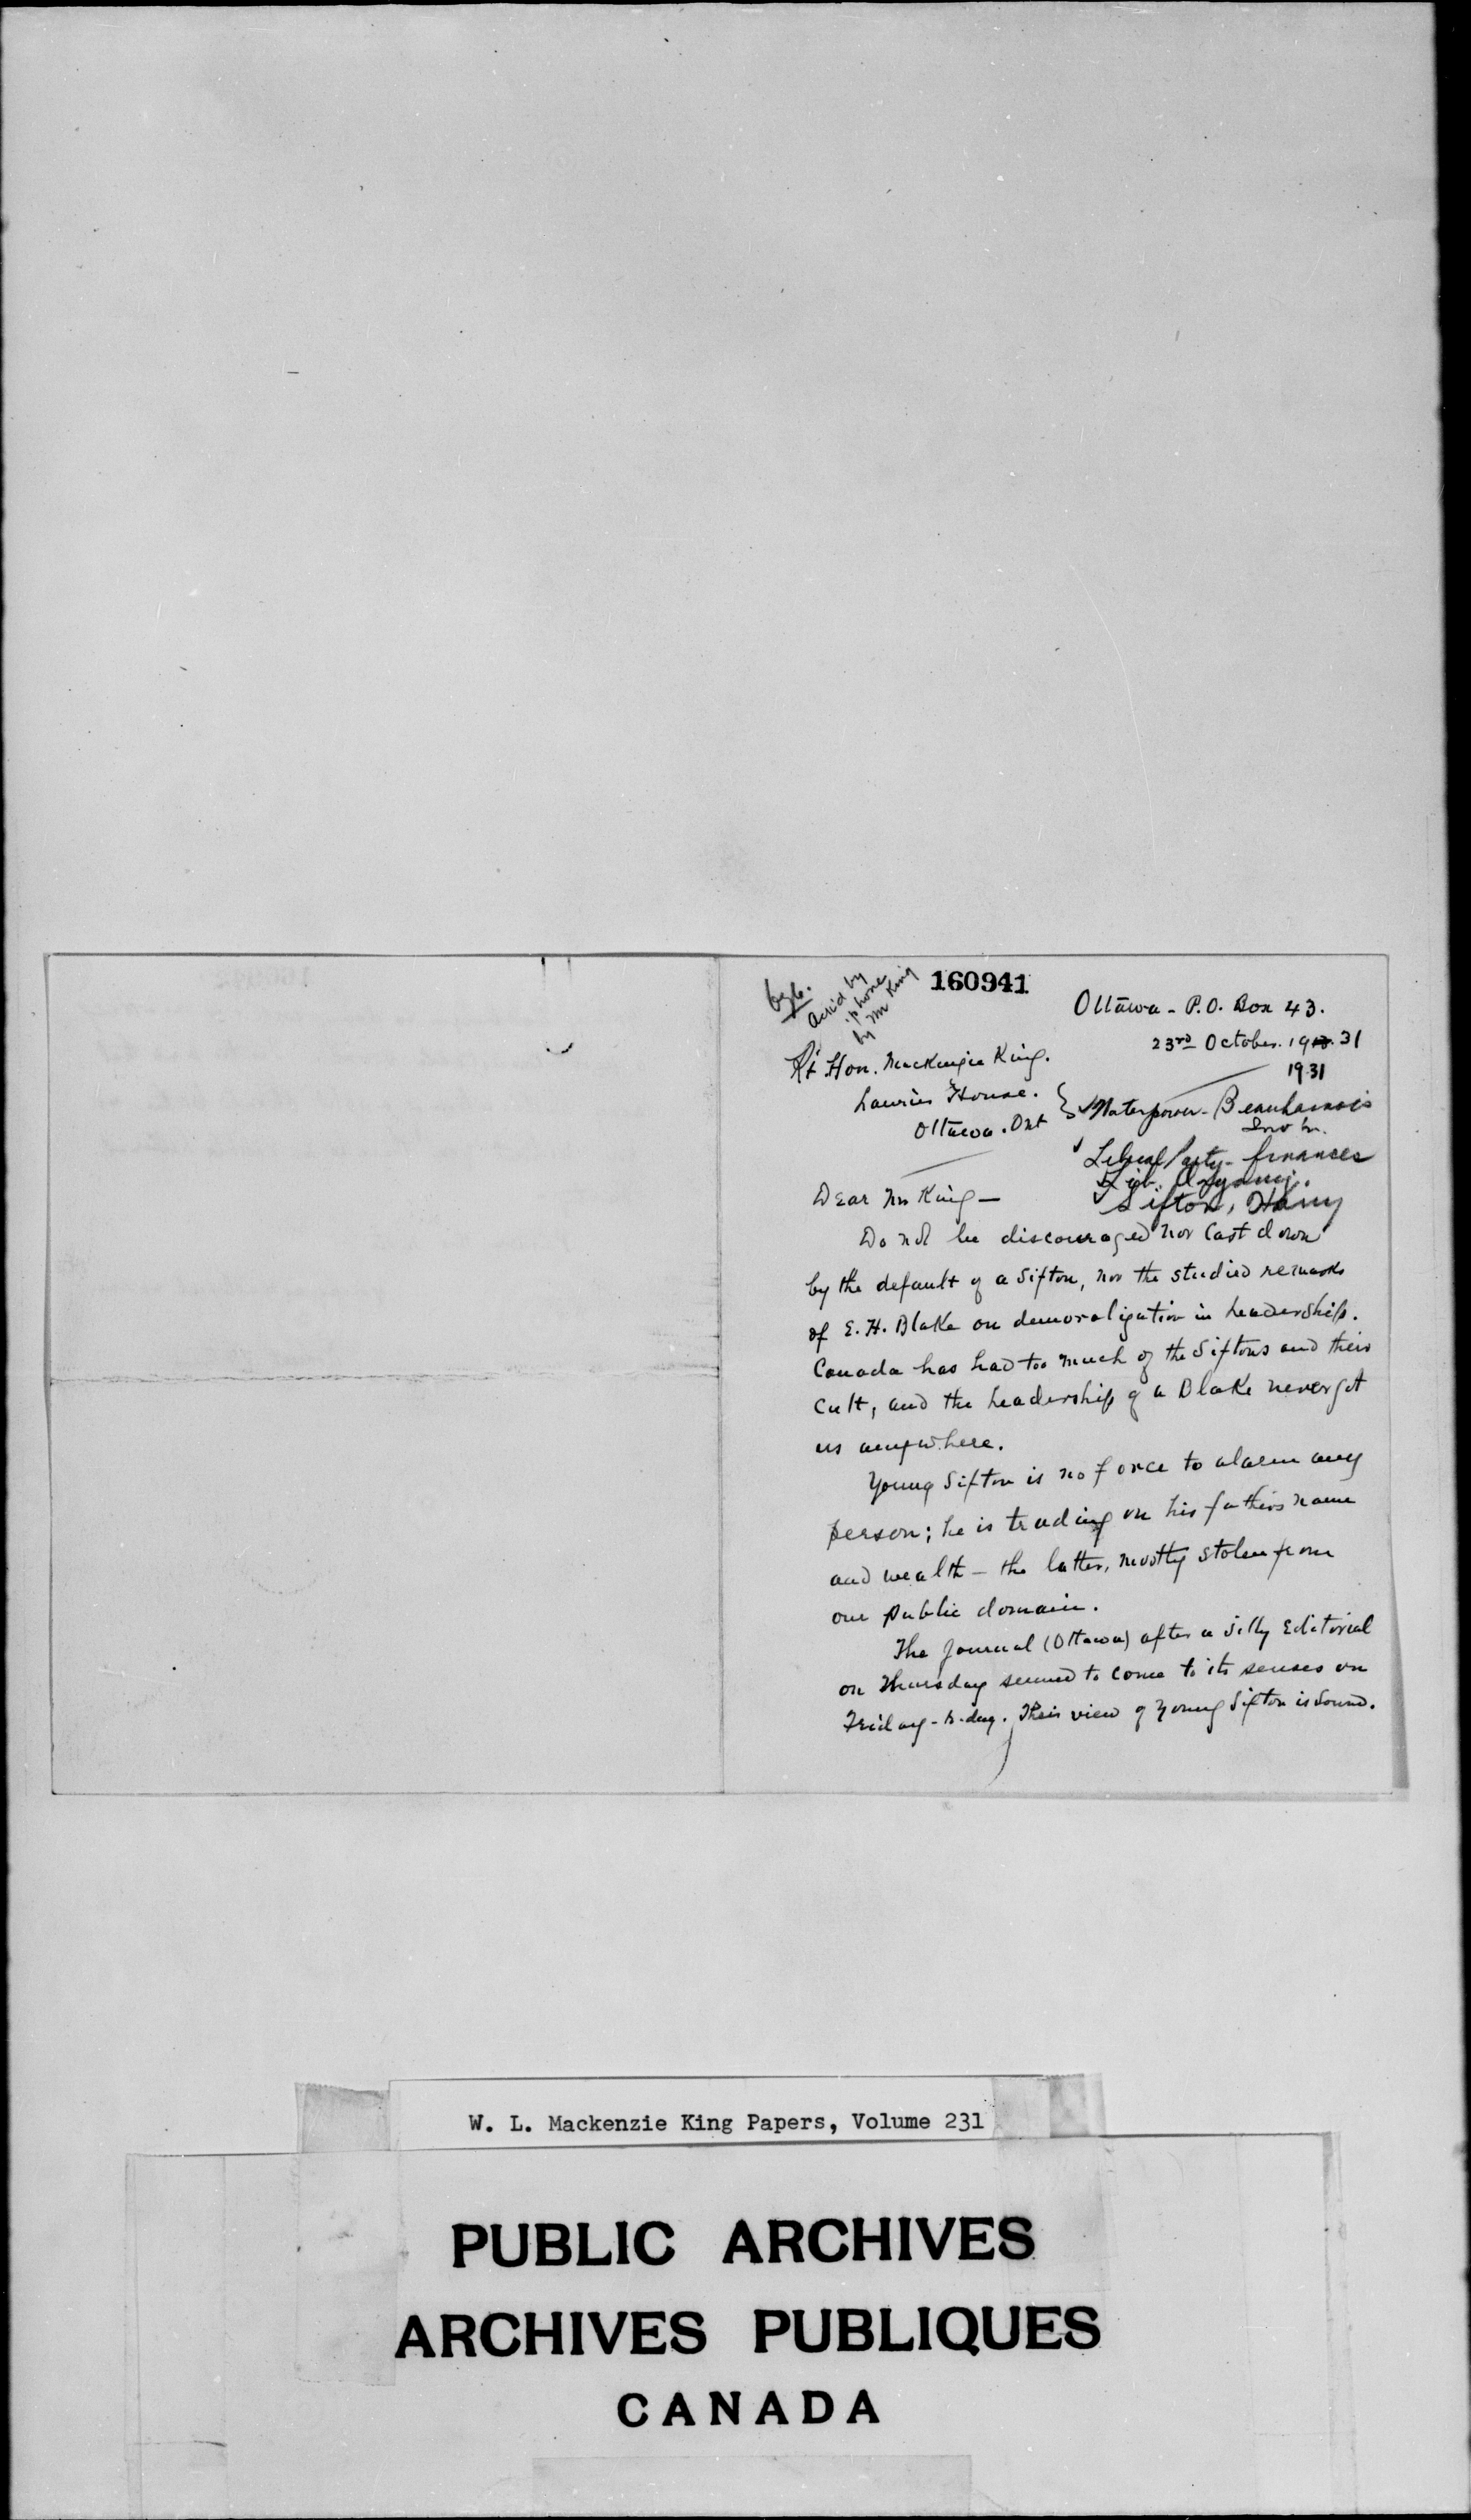 160941
Ack'd by
'phone
by Mr King
Ottawa - P.O. Box 43.
23rd October. 1931
1931
Rt Hon. MacKenzie King.
Laurier House.
Ottawa. Ont
Waterpower - Beauharnois
Inv'n.
Liberal Party - finances
Lib. Organiz.
Sifton, Harry
Dear Mr King -
Do not be discouraged nor cast down
by the default of a Sifton, nor the studied remarks
of E. H. Blake on demoralization in Leadership.
Canada has had too much of the Siftons and their
Cult, and the Leadership of a Blake never got
us anywhere.
Young Sifton is no force to alarm any
person; he is trading on his fathers name
and wealth - the latter, mostly stolen from
our public domain.
The Journal (Ottawa) after a silly Editorial
on Thursday seemed to come to its senses on
Friday - to-day. Their view of Young Sifton is sound.
W. L. Mackenzie King Papers, Volume 231
PUBLIC ARCHIVES
ARCHIVES PUBLIQUES
CANADA